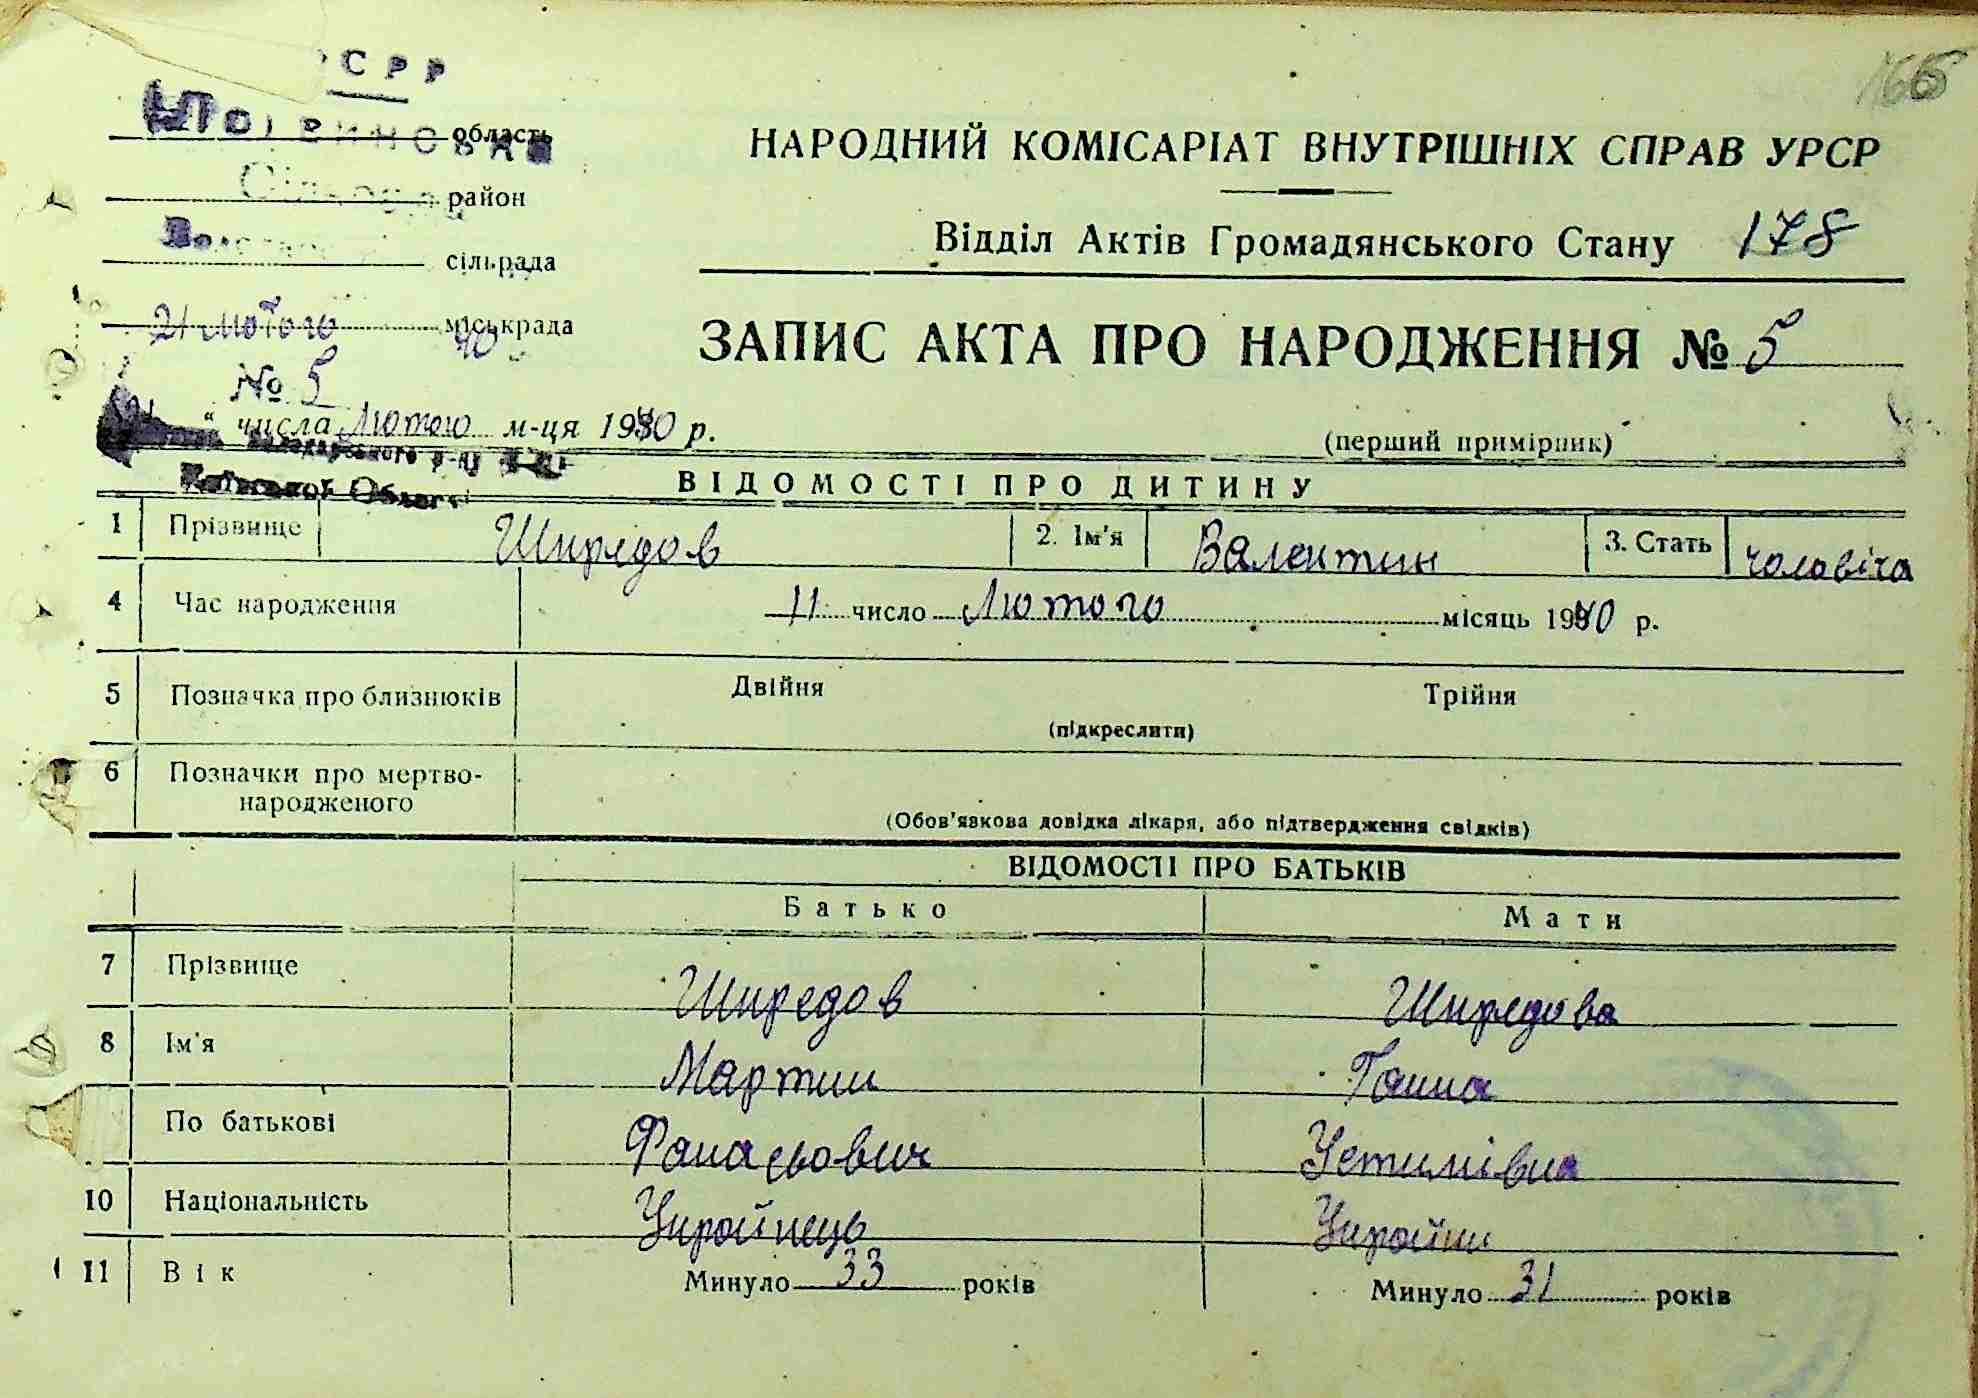 166
СРР
область
НАРОДНИЙ КОМІСАРІАТ ВНУТРІШНІХ СПРАВ УРСР
район
Відділ Актів Громадянського Стану 178
сільрада
21 Лютого 40 міськрада
ЗАПИС АКТА ПРО НАРОДЖЕННЯ № 5
№ 5
" числа Лютого м-ця 1940 р.
(перший примірник)
Київської Області
ВІДОМОСТІ ПРО ДИТИНУ
1 Прізвище Ширедов 2. Ім'я Валентин 3. Стать чоловіча
4 Час народження 11 число Лютого місяць 1940 р.
5 Позначка про близнюків Двійня Трійня
(підкреслити)
6 Позначки про мертво-
народженого
(Обов'язкова довідка лікаря, або підтвердження свідків)
ВІДОМОСТІ ПРО БАТЬКІВ
Батько Мати
7 Прізвище Ширедов Ширедова
8 Ім'я Мартин Ганна
По батькові Фанасьович Устимівна
10 Національність Українець Україн
11 Вік Минуло 33 років Минуло 31 років